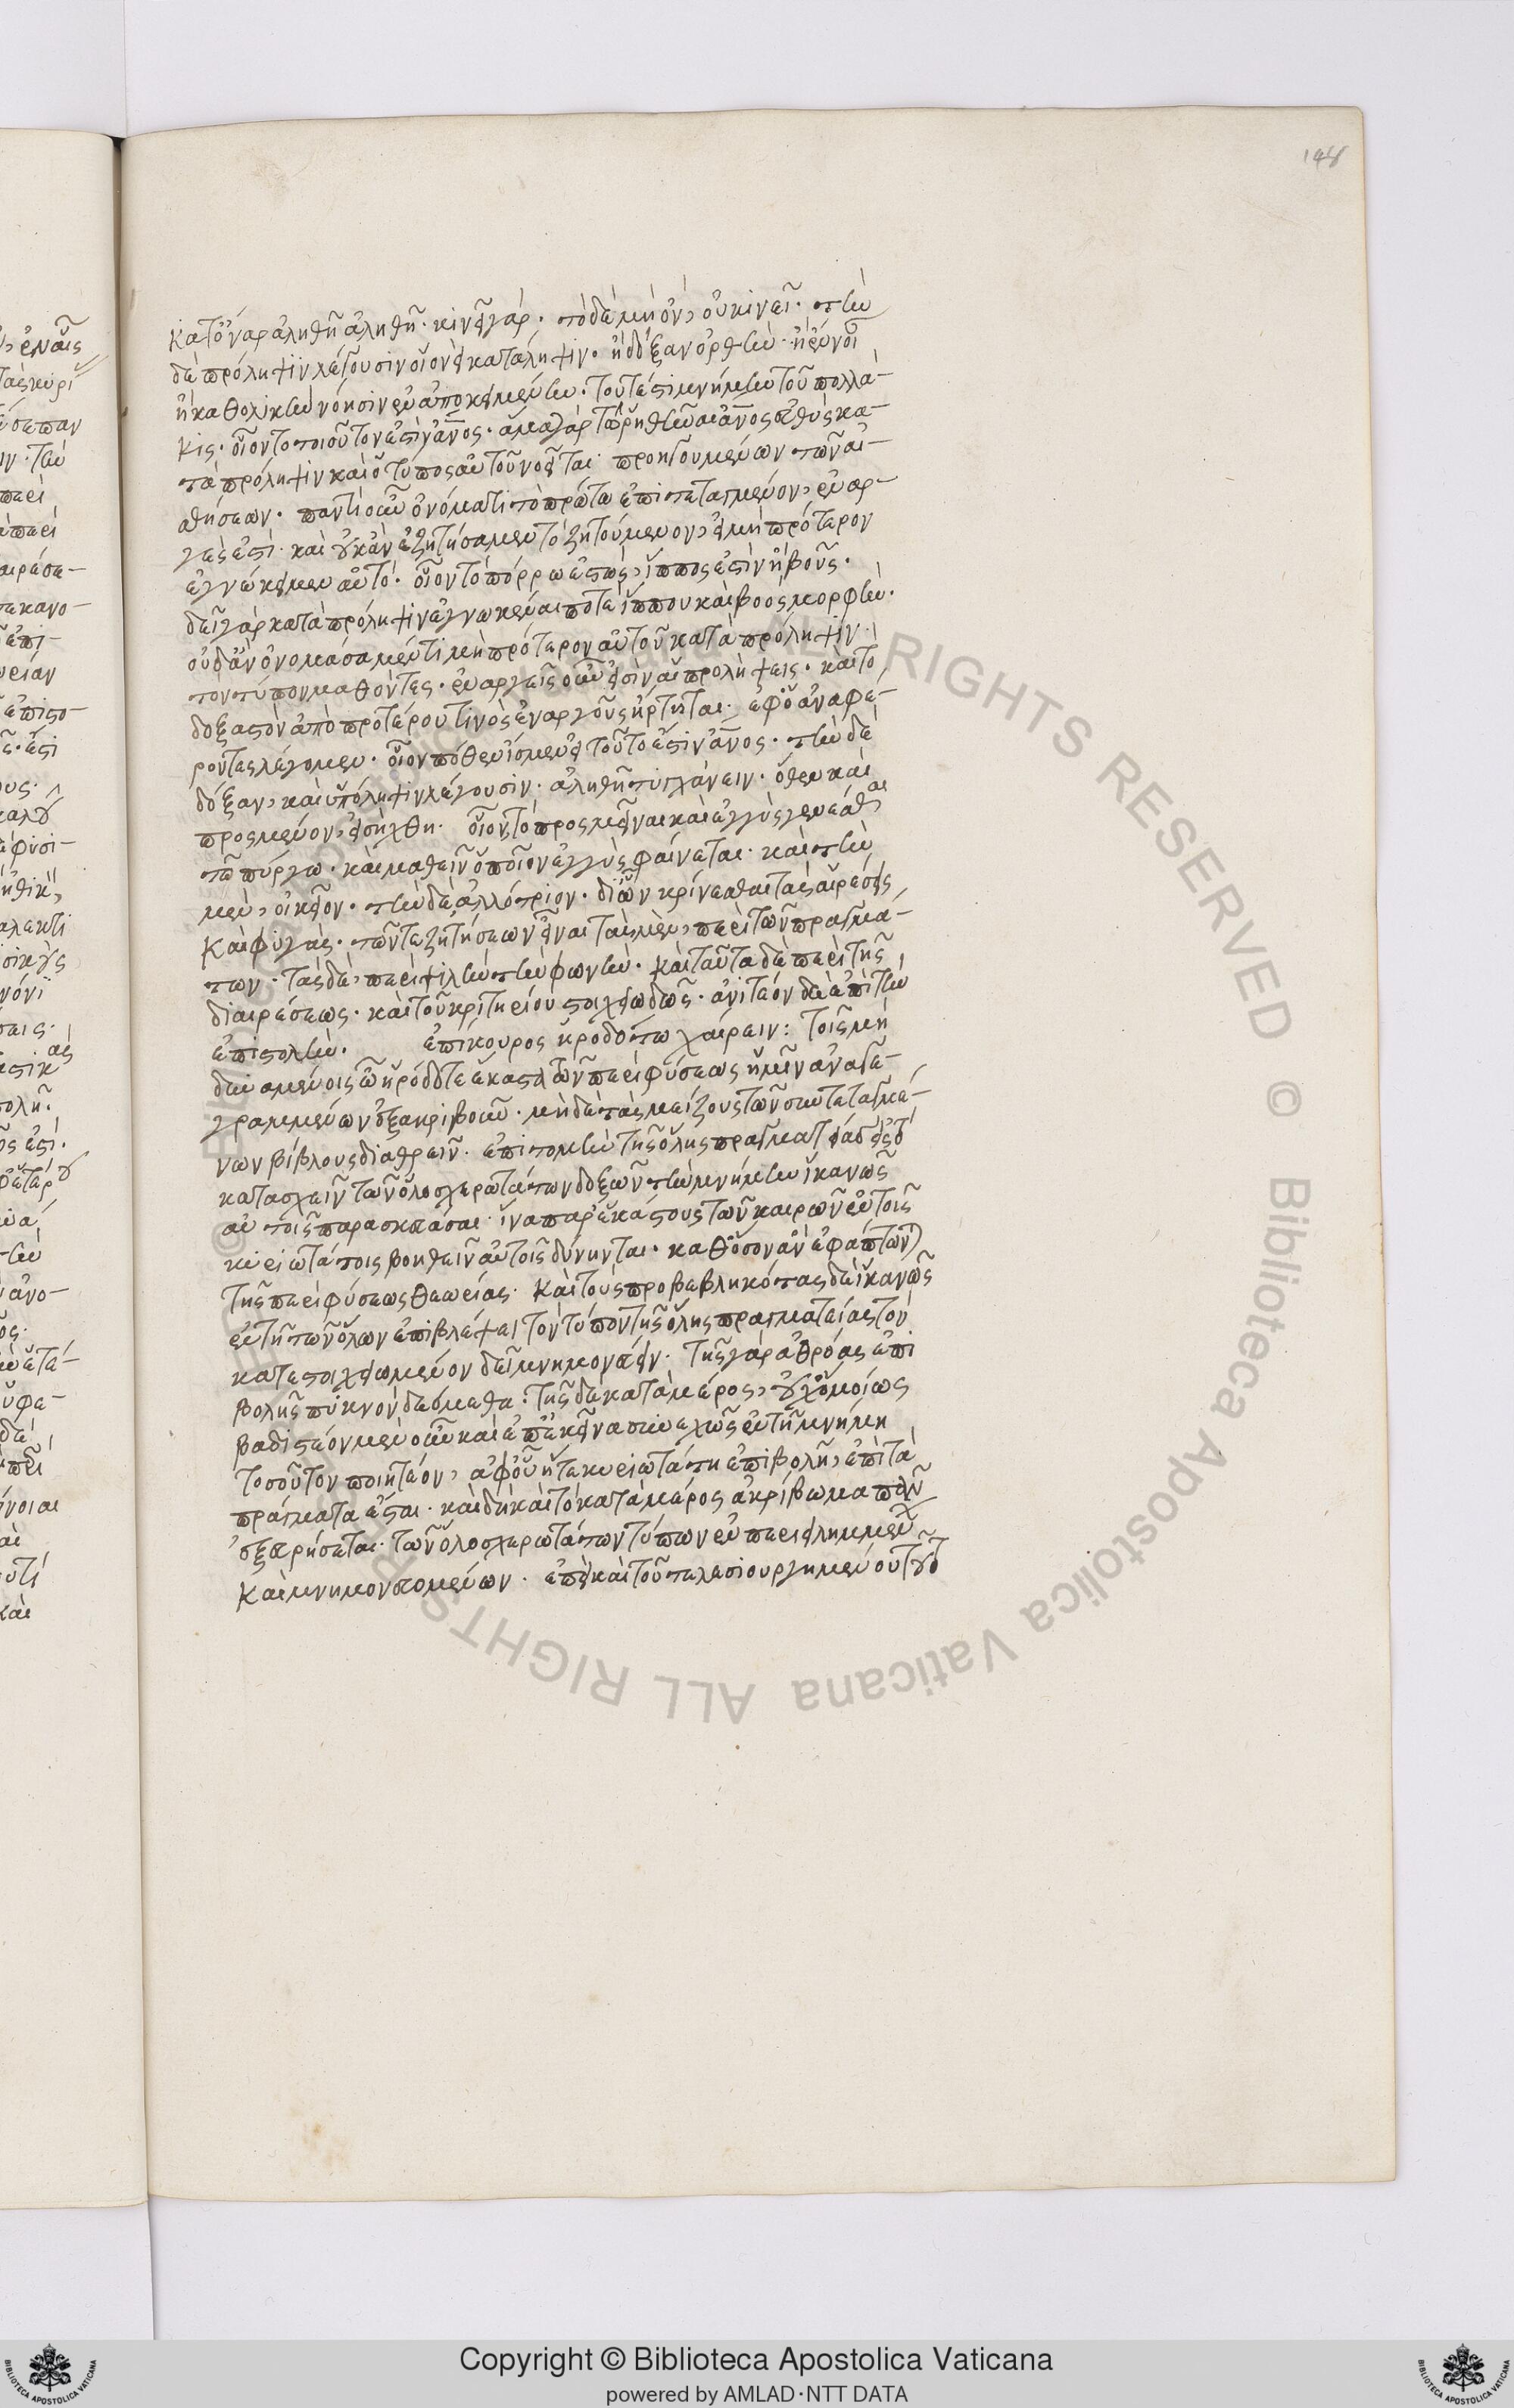 148
κατ' ὄναρ ἀληθῆ ἀληθῆ· κινεῖ γάρ· τὸ δὲ μὴ ὂν, οὐ κινεῖ· τὴν
δὲ πρόληψιν λέγουσιν οἱονεὶ κατάληψιν· ἢ δόξαν ὀρθὴν· ἢ ἔννοι
ἢ καθολικὴν νόησιν ἐναποκειμένην· τουτέστι μνήμην τοῦ πολλά-
κις· οἷον τὸ τοιοῦτον ἐστὶν ἄνος· ἅμα γὰρ τῶ ῥηθῆναι ἄνος εὐθὺς κα-
τὰ πρόληψιν καὶ ὁ τύπος αὐτοῦ νοεῖται· προηγουμένων τῶν αἰ-
σθήσεων· παντὶ οὖν ὀνόματι τὸ πρώτω ἐπιτεταγμένον, ἐναρ-
γές ἐστι· καὶ οὐκ ἂν ἐζητήσαμεν τὸ ζητούμενον, εἰ μὴ πρότερον
ἐγνώκειμεν αὐτό· οἷον τὸ πόρρω ἑστὼς, ἵππος ἐστὶν ἢ βοῦς·
δεῖ γὰρ κατὰ πρόληψιν ἐγνωκέναι ποτὲ ἵππου καὶ βοὸς μορφὴν·
οὐδ' ἂν ὀνομάσαμέν τι μὴ πρότερον αὐτοῦ κατὰ πρόληψιν
τὸν τύπον μαθόντες· ἐναργεῖς οὖν εἰσὶν αἱ προλήψεις· καὶ τὸ
δοξαστὸν ἀπὸ προτέρου τινὸς ἐναργοῦς ἤρτηται· ἐφ' ὃ ἀναφέ-
ροντες λέγομεν· οἷον πόθεν ἴσμεν εἰ τοῦτο ἐστὶν ἄνος· τὴν δὲ
δόξαν, καὶ ὑπόληψιν λέγουσιν· ἀληθῆ τυγχάνειν· ὅθεν καὶ
προσμένον, εἰσήχθη· οἷον τὸ προσμεῖναι καὶ ἐγγὺς γενέσθαι
τῶ πύργω· καὶ μαθεῖν ὁποῖον ἐγγὺς φαίνεται· καὶ τὴν
μὲν, οἰκεῖον· τὴν δὲ ἀλλότριον· δι' ὧν κρίνεσθαι τὰς αἱρέσεις
καὶ φυγάς· τῶν τε ζητήσεων εἶναι τὰς μὲν, περὶ τῶν πραγμά-
των· τὰς δὲ, περὶ ψιλὴν τὴν φωνὴν· καὶ ταῦτα δὲ περὶ τῆς
διαιρέσεως· καὶ τοῦ κριτηρίου στοιχειωδῶς· ἀνιτέον δὲ ἐπὶ τὴν
ἐπιστολὴν· ἐπίκουρος ἡροδότω χαίρειν: τοῖς μὴ
δυναμένοις ὦ ἡρόδοτε ἕκαστα τῶν περὶ φύσεως ἡμῖν ἀναγε-
γραμμένων ἐξακριβοῦν· μὴ δὲ τὰς μείζους τῶν συντεταγμέ-
νων βίβλους διαθρεῖν· ἐπιτομὴν τῆς ὅλης πραγματείας εἰς τὸ
κατασχεῖν τῶν ὁλοσχερωτάτων δοξῶν τὴν μνήμην ἱκανῶς
αὐτοῖς παρασκευάσαι· ἵνα παρ' ἑκάστους τῶν καιρῶν ἐν τοῖς
κυριωτάτοις βοηθεῖν αὐτοῖς δύνηνται· καθ' ὅσον ἂν ἐφάπτωνται
τῆς περὶ φύσεως θεωρίας· καὶ τοὺς προβεβληκότας δὲ ἱκανῶς
ἐν τῆ τῶν ὅλων ἐπιβλέψει τὸν τύπον τῆς ὅλης πραγματείας τὸν
κατεστοιχειωμένον δεῖ μνημονεύειν· τῆς γὰρ ἀθρόας ἐπι
βολῆς πυκνὸν δεόμεθα: τῆς δὲ κατὰ μέρος, οὐχ ὁμοίως
βαδιστέον μὲν οὖν καὶ ἐπ' ἐκεῖνα συνεχῶς ἐν τῆ μνήμη
τοσοῦτον ποιητέον, ἀφ' οὗ ἥ τε κυριωτάτη ἐπιβολῆ, ἐπὶ τὰ
πράγματα ἔσται· καὶ δὴ καὶ τὸ κατὰ μέρος ἀκρίβωμα πᾶν
ἐξευρήσεται· τῶν ὁλοσχερωτάτων τύπων εὖ περιειλημμένων
καὶ μνημονευομένων· ἐπεὶ καὶ τοῦ τελεσιουργημένου τοῦτο